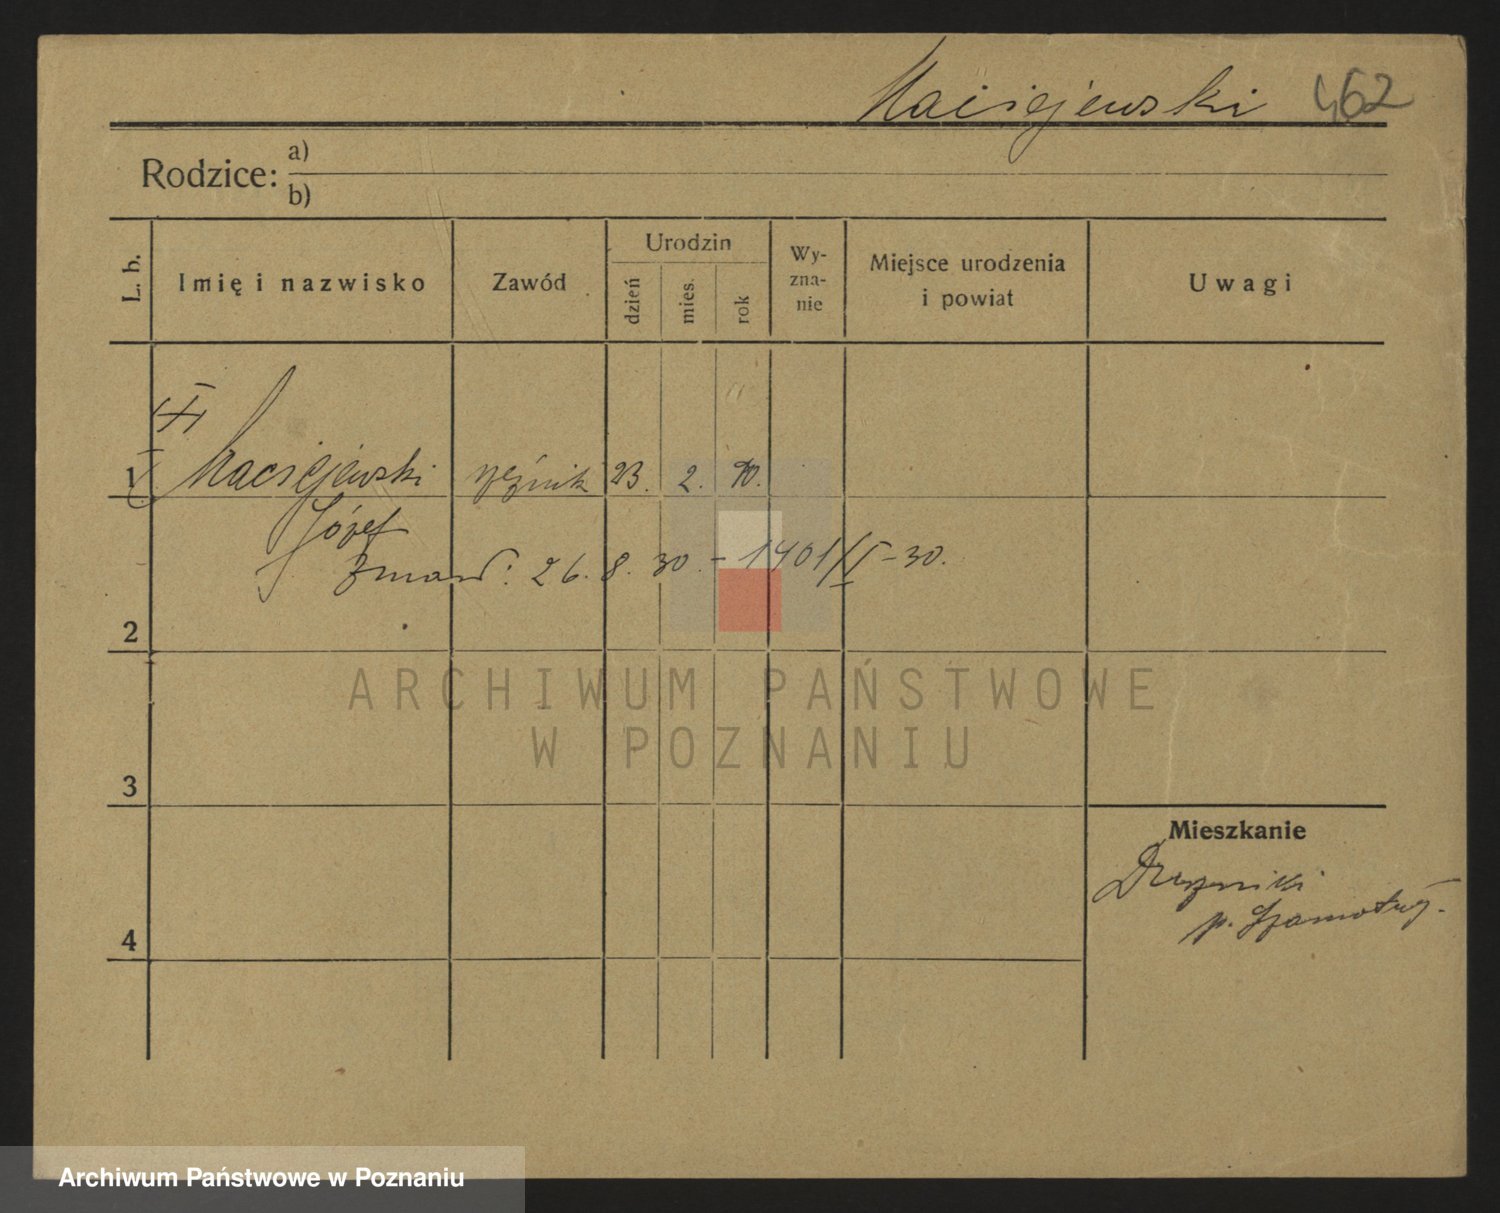 Maciejewski 462
Rodzice: a)
b)
L. b.
Imię i nazwisko
Zawód
Urodzin
dzień
mies.
rok
Wy-
zna-
nie
Miejsce urodzenia
i powiat
Uwagi
1 Maciejewski rzeźnik 23. 2.
Józef
Zmarł: 26. 8. 30. – 1401/II – 30.
2
3
4
Mieszkanie
p. Szamotuły.
ARCHIWUM PAŃSTWOWE
W POZNANIU
Archiwum Państwowe w Poznaniu